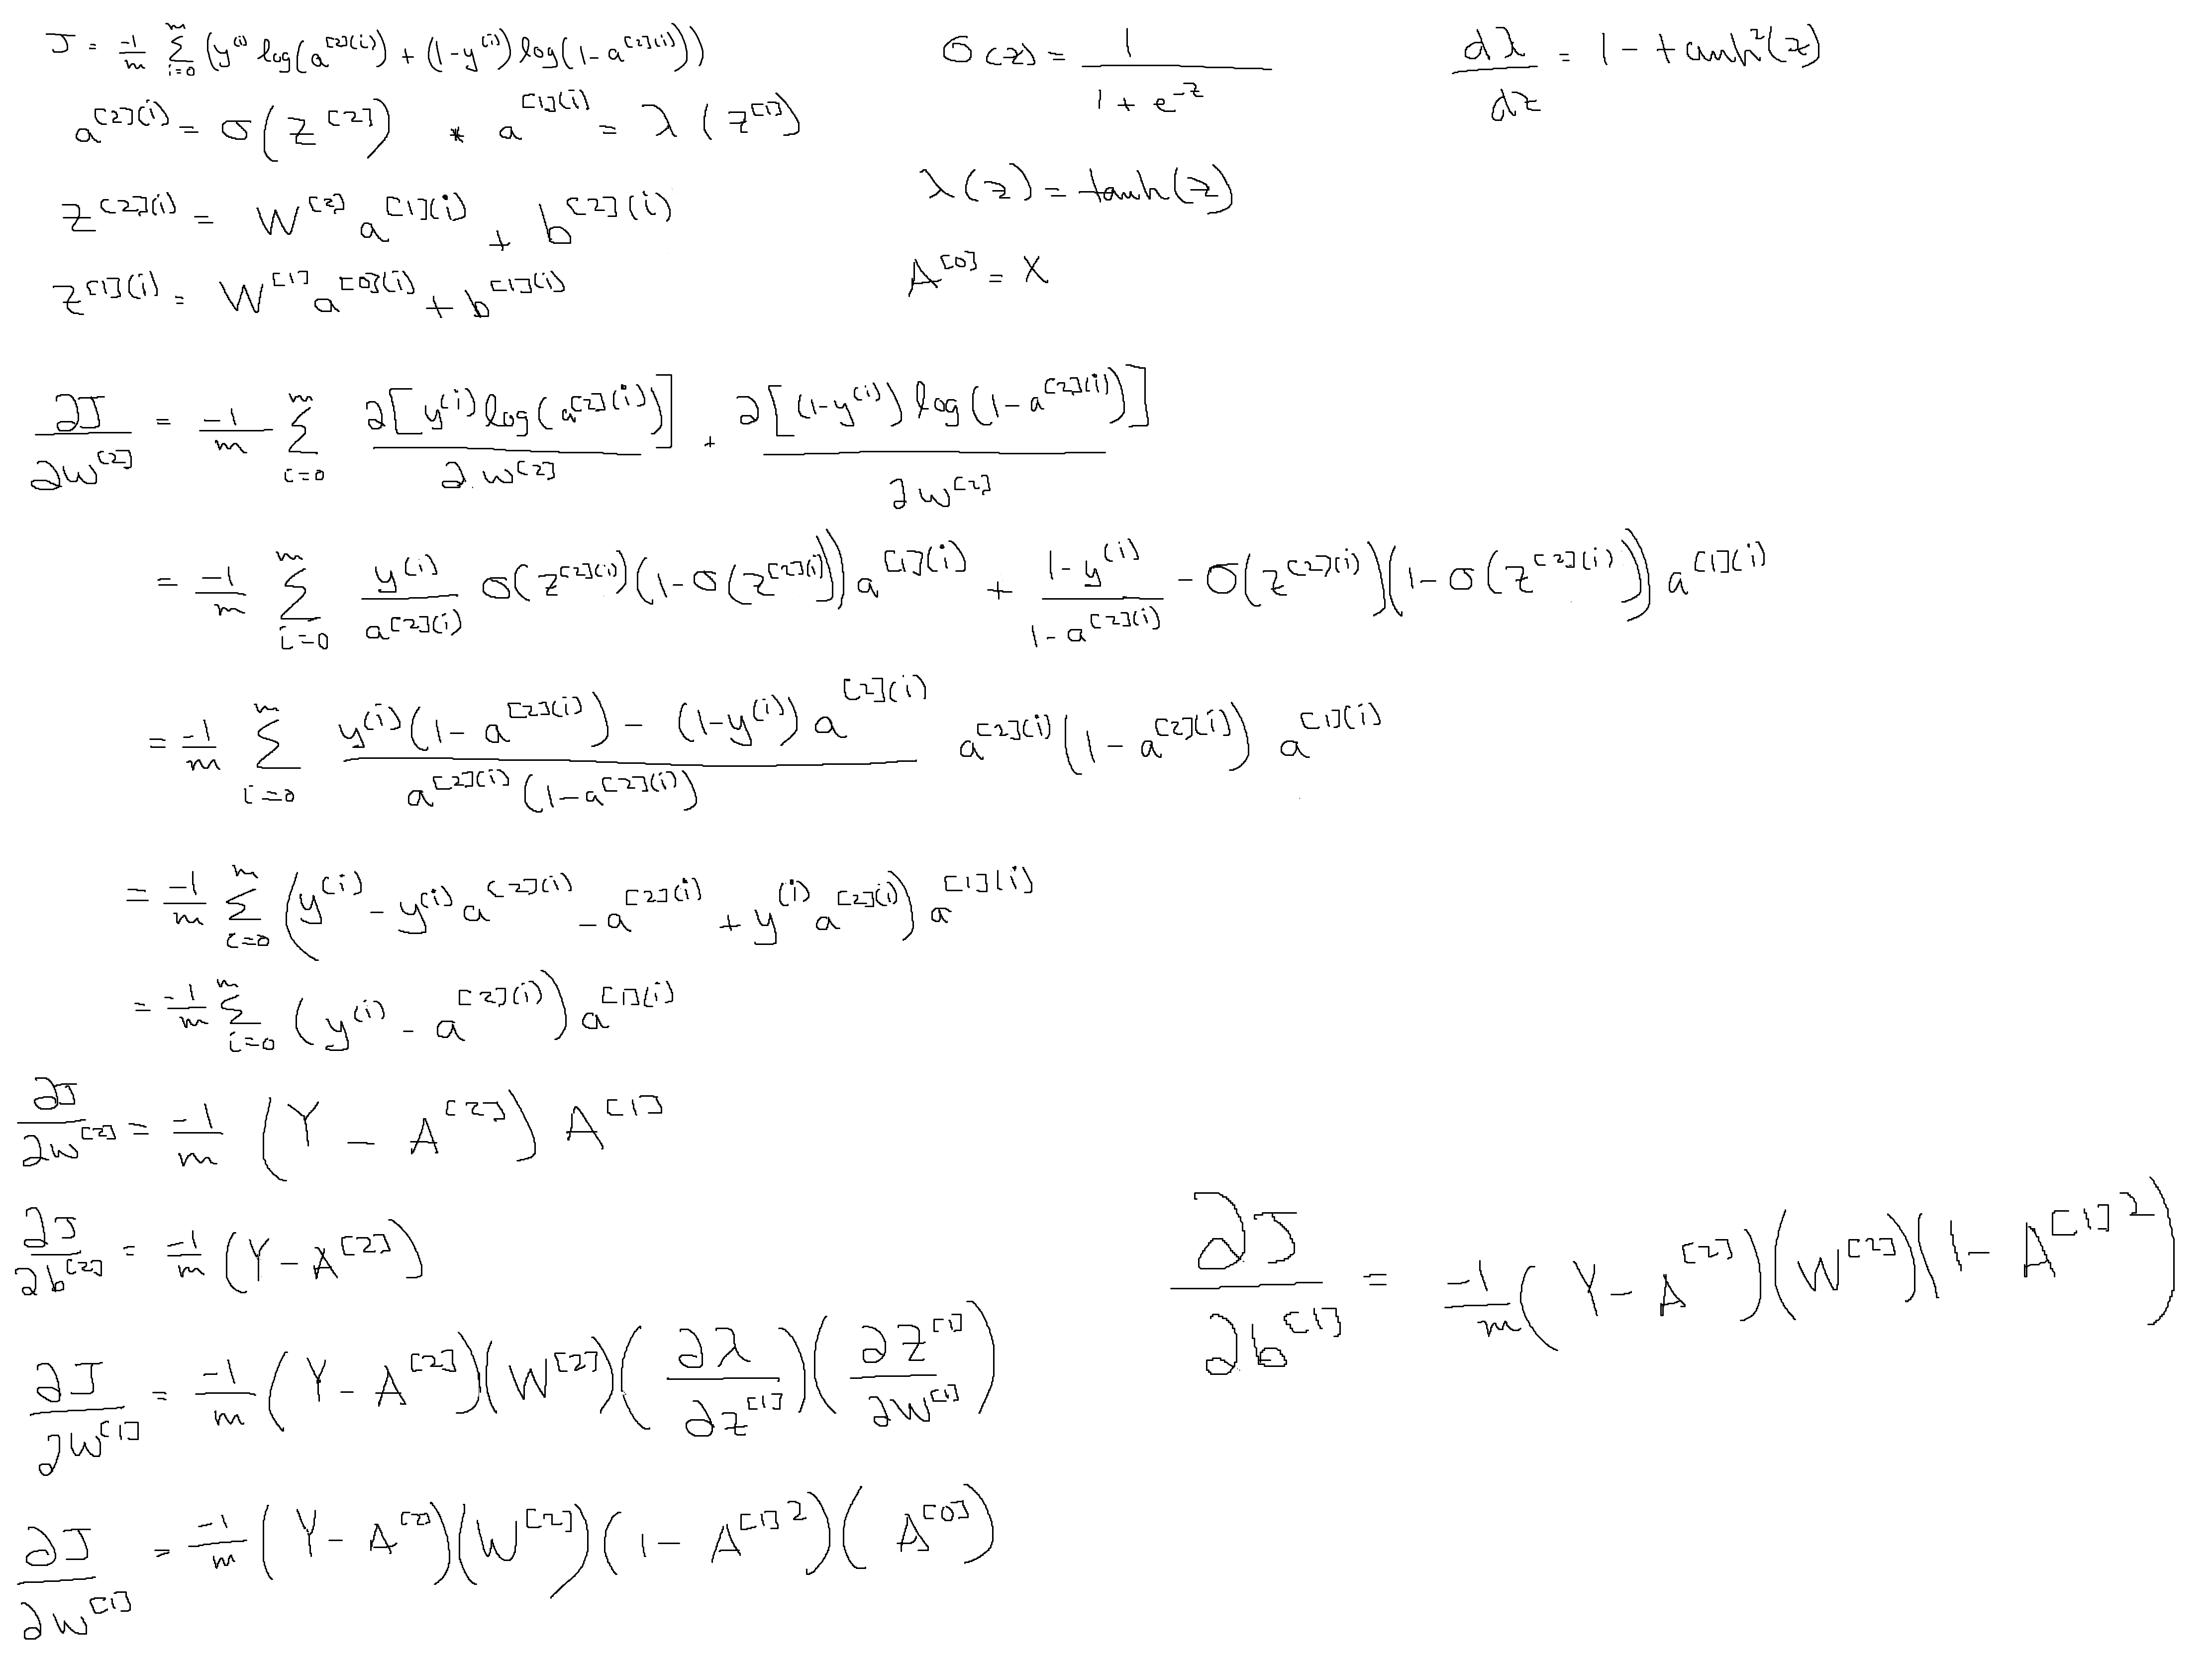 J = -1/m Σ_{i=0}^{m} (y^{(i)} log(a^{[2](i)}) + (1-y^{(i)}) log(1-a^{[2](i)}))
σ(z) = 1/(1 + e^{-z})
dλ/dz = 1 - tanh²(z)
a^{[2](i)} = σ(z^{[2]}) * a^{[1](i)} = λ(z^{[1]})
λ(z) = tanh(z)
z^{[2](i)} = W^{[2]} a^{[1](i)} + b^{[2](i)}
A^{[0]} = X
z^{[1](i)} = W^{[1]} a^{[0](i)} + b^{[1](i)}
∂J/∂w^{[2]} = -1/m Σ_{i=0}^{m} ∂[y^{(i)} log(a^{[2](i)})]/∂w^{[2]} + ∂[(1-y^{(i)}) log(1-a^{[2](i)})]/∂w^{[2]}
= -1/m Σ_{i=0}^{m} y^{(i)}/a^{[2](i)} σ(z^{[2](i)})(1-σ(z^{[2](i)})) a^{[1](i)} + (1-y^{(i)})/(1-a^{[2](i)}) - σ(z^{[2](i)})(1-σ(z^{[2](i)})) a^{[1](i)}
= -1/m Σ_{i=0}^{m} (y^{(i)}(1-a^{[2](i)}) - (1-y^{(i)}) a^{[2](i)})/(a^{[2](i)}(1-a^{[2](i)})) a^{[2](i)}(1-a^{[2](i)}) a^{[1](i)}
= -1/m Σ_{i=0}^{m} (y^{(i)} - y^{(i)} a^{[2](i)} - a^{[2](i)} + y^{(i)} a^{[2](i)}) a^{[1](i)}
= -1/m Σ_{i=0}^{m} (y^{(i)} - a^{[2](i)}) a^{[1](i)}
∂J/∂w^{[2]} = -1/m (Y - A^{[2]}) A^{[1]}
∂J/∂b^{[2]} = -1/m (Y - A^{[2]})
∂J/∂b^{[1]} = -1/m (Y - A^{[2]})(W^{[2]})(1 - A^{[1]2})
∂J/∂w^{[1]} = -1/m (Y - A^{[2]})(W^{[2]})(∂λ/∂z^{[1]})(∂z^{[1]}/∂w^{[1]})
∂J/∂w^{[1]} = -1/m (Y - A^{[2]})(W^{[2]})(1 - A^{[1]2})(A^{[0]})